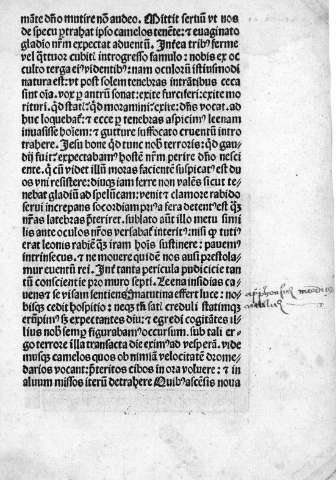 māte dr̄o mutire nō audeo. Mittit seruū vt nos
de specu ꝓtrahat ipso camelos tenēte: ⁊ euaginato
gladio nr̄m expectat aduentū. Interea tribꝰ ferme
vel q̄ttuor cubiti introgresso famulo: nobis ex oc
culto terga eiꝰ videntibꝰ: nam oculorū istiusmodi
natura est: vt post solem tenebras intrātibus ceca
sint oīa. vox ꝑ antrū sonat: exite furciferi: exite mo
rituri. qd̄ statis: qd̄ moramini: exite: dn̄s vocat. ad
huc loquebat᷑: ⁊ ecce ꝑ tenebras aspicimꝰ leenam
inuasisse hoīem: ⁊ gutture suffocato cruentū intro
trahere. Jesu bone qd̄ tunc nob̄ terroris: qd̄ gau
dij fuit: expectabamꝰ hostē nr̄m perire dn̄o nesci
ente. q̄ cū videt illiꝰ moras facientē suspicatꝰ est du
os vni resistere: diuq̄ iam ferre non valēs sicut te
nebat gladiū ad speluncā venit: ⁊ clamore rabido
serui increpans socordiam priꝰ a fera detentꝰ est q̄
nr̄as latebras p̄teriret. sublato aūt illo metu simi
lis ante oculos nr̄os versabat᷑ interitꝰ: nisi ꝙ tuti
erat leonis rabiē q̄ꝫ iram hoīs sustinere: pauemꝰ
intrinsecus: ⁊ ne mouere quidē nos ausi prestola
mur euentū rei. Int᷑ tanta pericula pudicicie tan
tū conscientie pro muro septi. Leena insidias ca
uens ⁊ se visam sentiens matutina effert luce: no
bisq̄ cedit hospitio: neq̄ tn̄ sati creduli statimq̄
erūpimꝰ sꝫ expectantes diu: ⁊ egredi cogitātes il
lius nob̄ semꝑ figurabamꝰ occursum. sub tali er
go terrore illa transacta die eximꝰ ad vesꝑā. vide
musq̄ camelos quos ob nimiā velocitatē drome
darios vocant: p̄teritos cibos in ora voluere: ⁊ in
aluum missos iterū detrahere Quibꝰ ascēsis noua